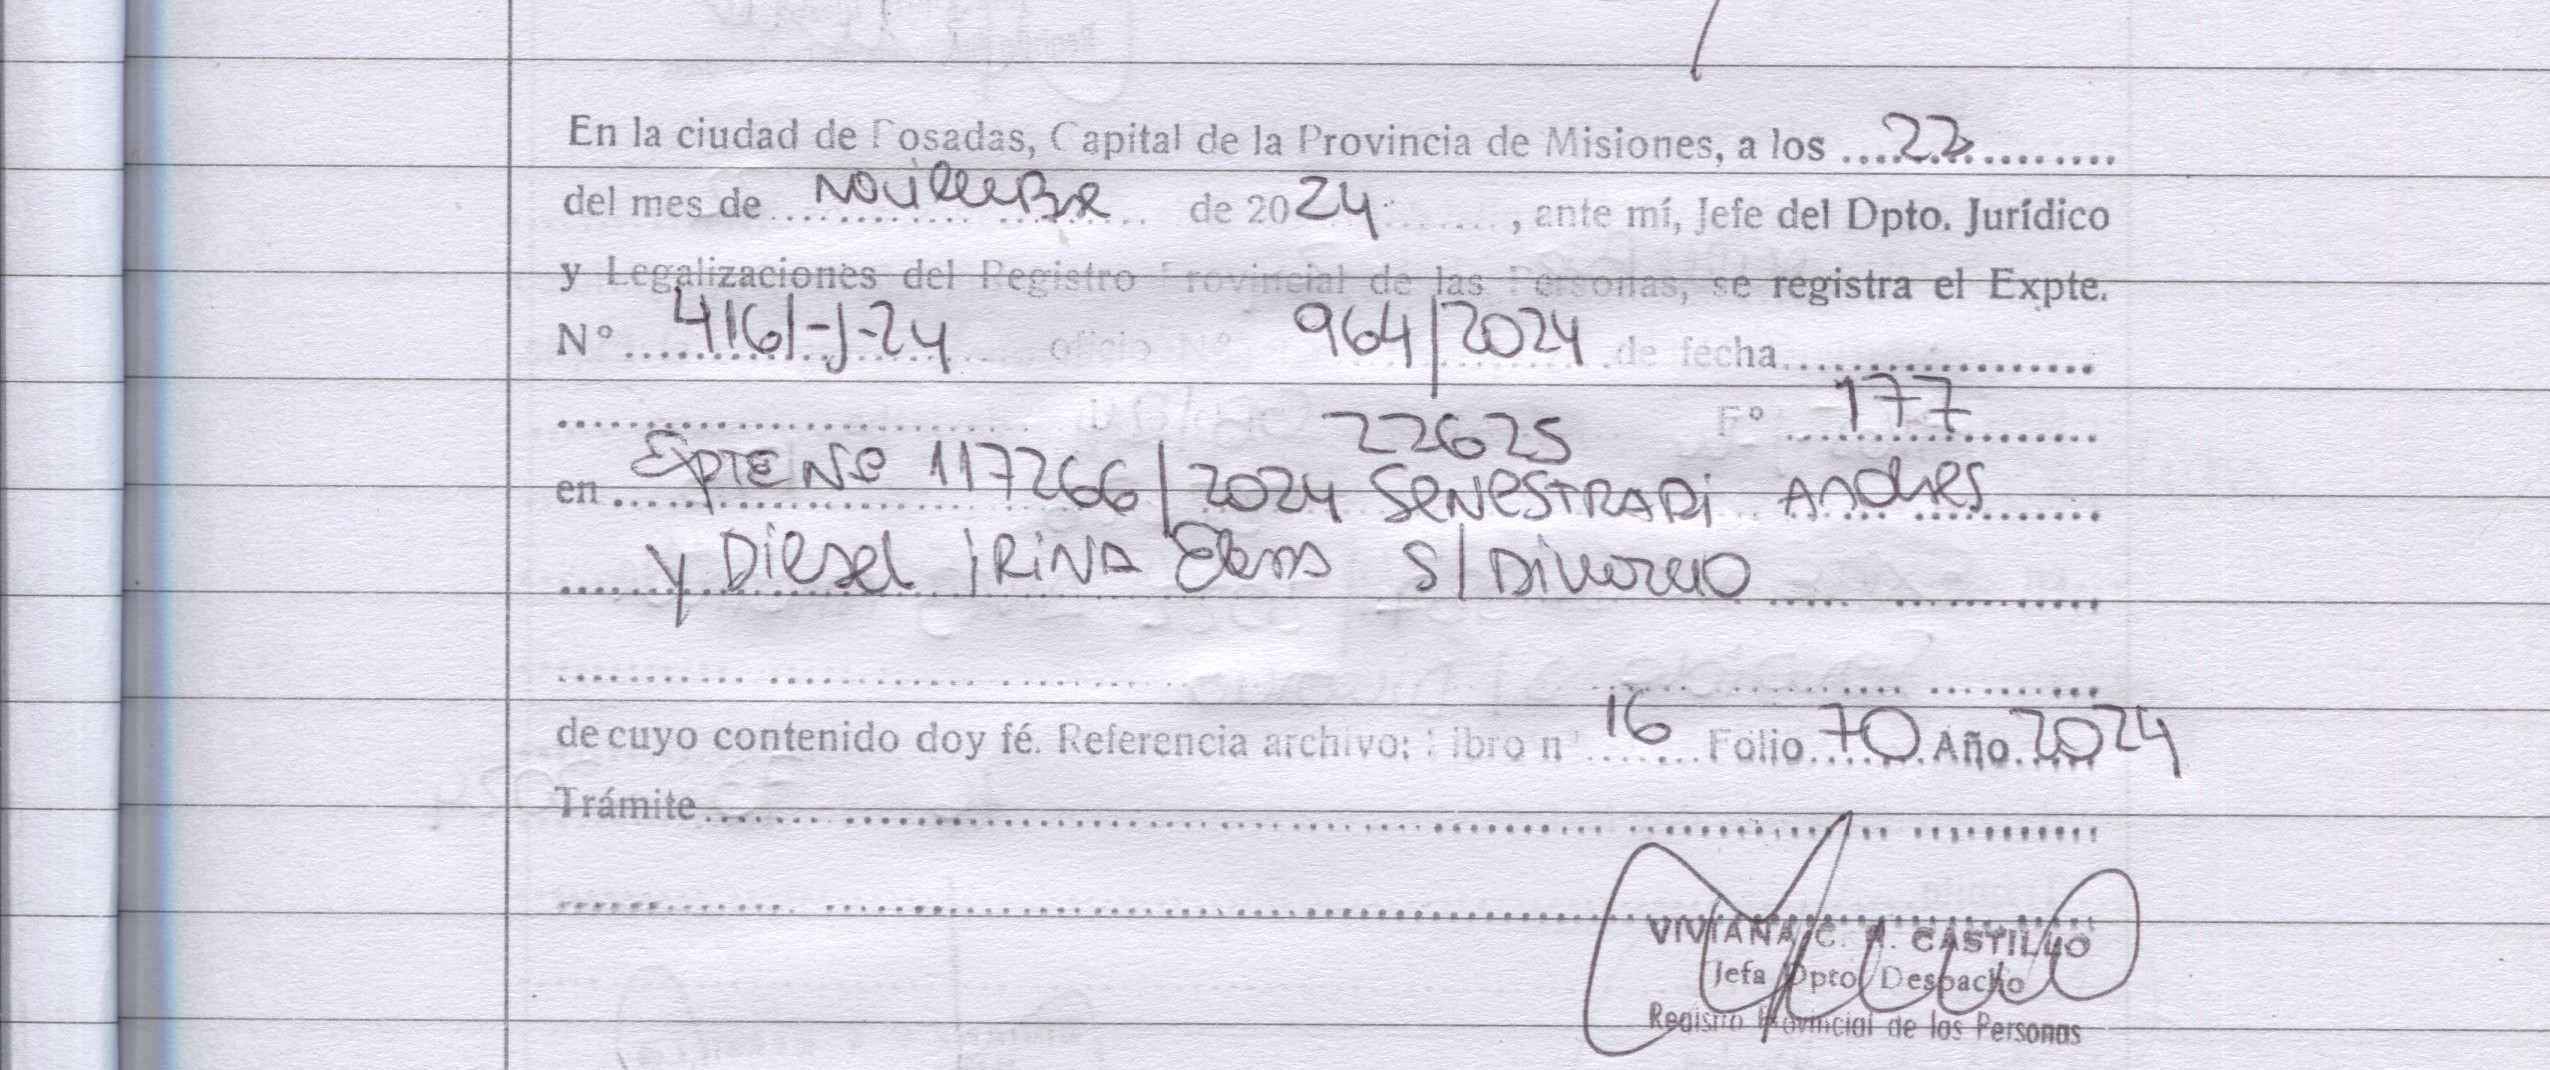 En la ciudad de Posadas, Capital de la Provincia de Misiones, a los ....22...............
del mes de ..... Noviembre ..... de 2024 ........, ante mí, Jefe del Dpto. Jurídico
y Legalizaciones del Registro Provincial de las Personas, se registra el Expte.
N° ..... 4161-J-24 ..... oficio N° 964/2024 de fecha..................
..................... 22625 F° ..... 177 .....
en ..... Expte Nº 117266/2024 SENESTRARI Andres
..... y Diesel IRINA Elena S/ Divorcio .....
de cuyo contenido doy fé. Referencia archivo: Libro n° 16 Folio 70 Año 2024
Trámite.....................
VIVIANA C. CASTILLO
Jefa Dpto Despacho
Registro Provincial de las Personas